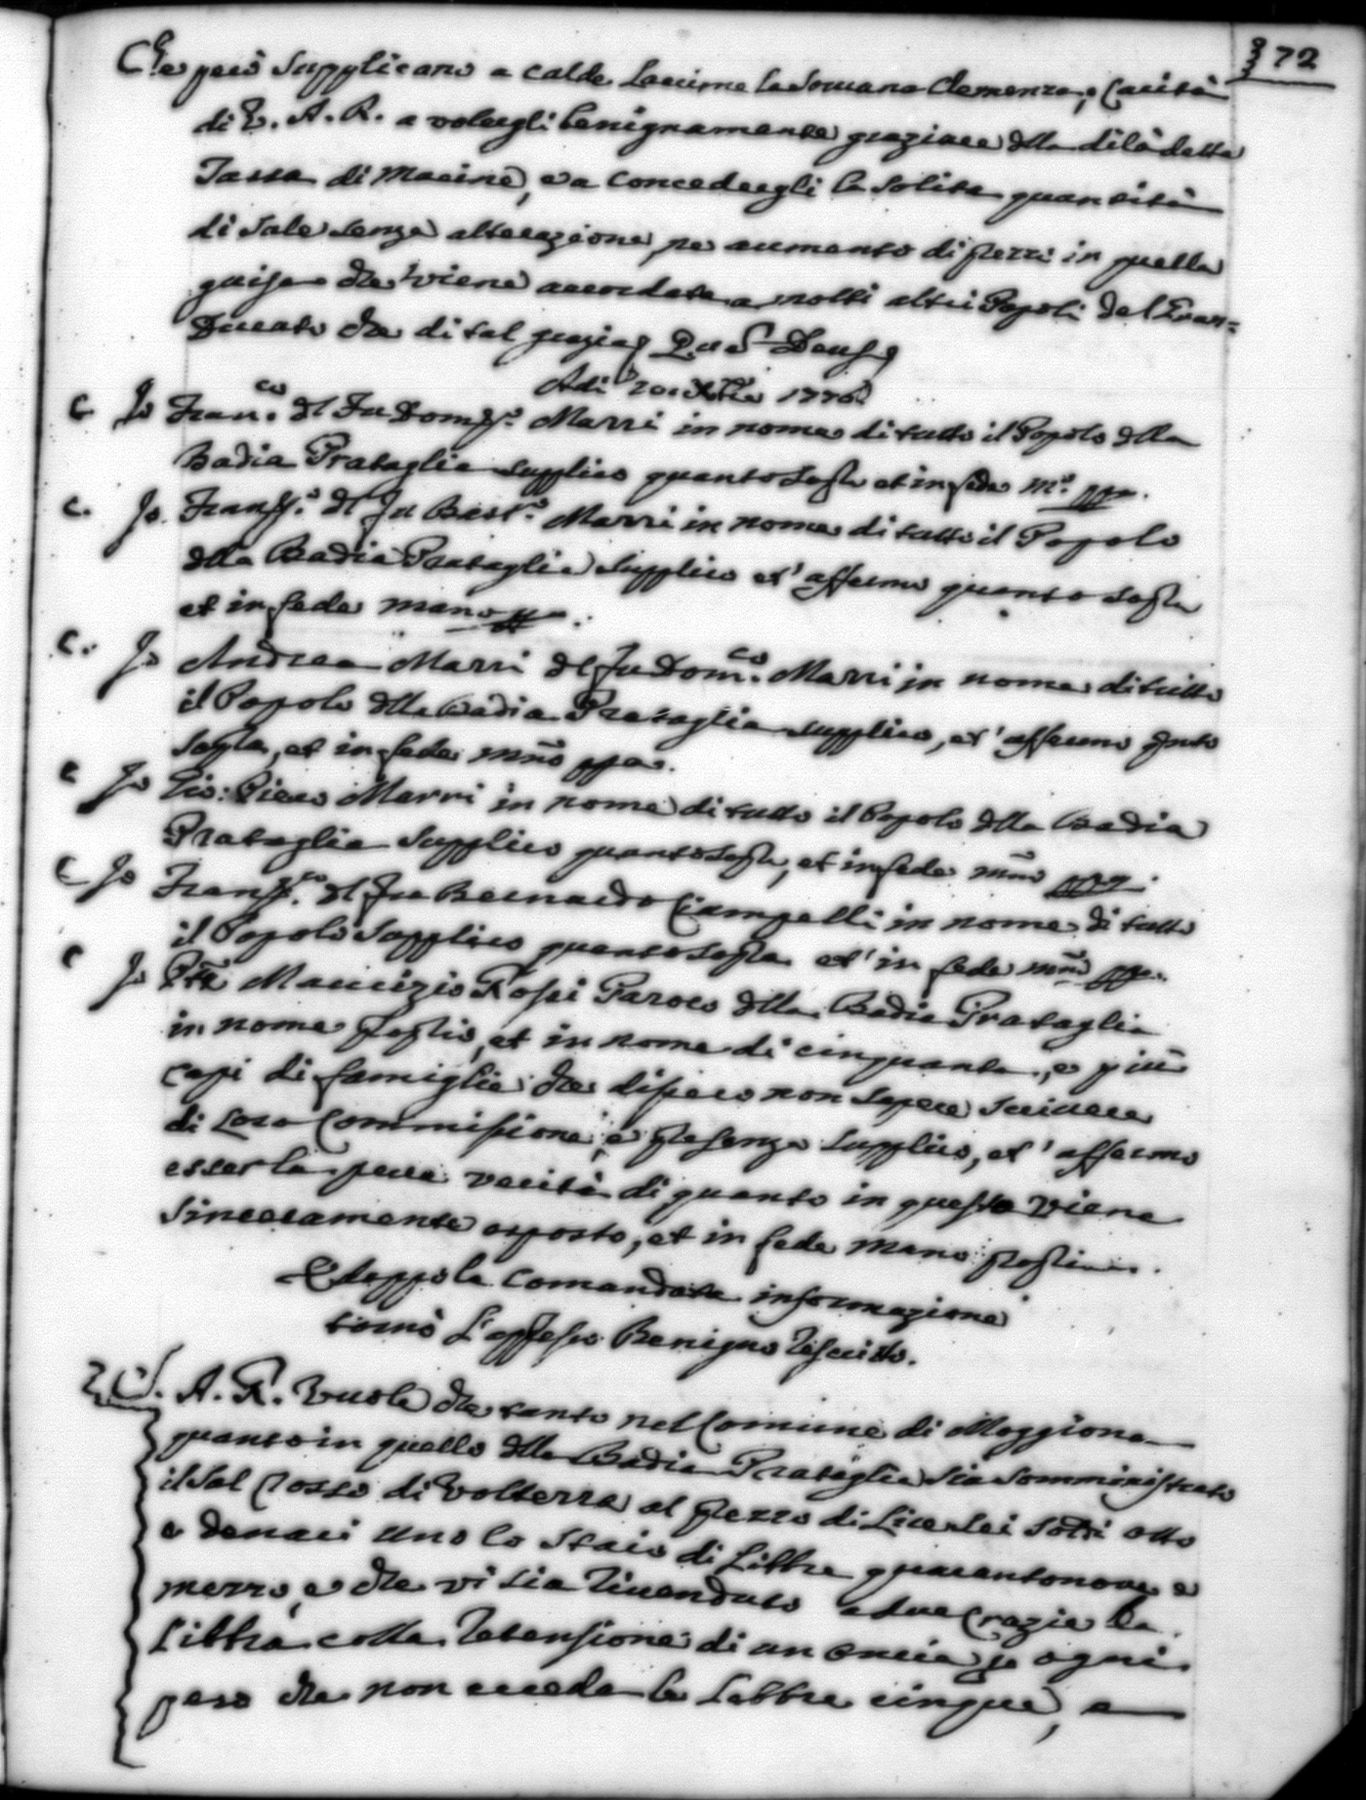 372
Che però Supplicano a calde Lacrime la Sovrana Clemenza, e Carità
di V. A. R. a volergli benignamente graziare dlla di là detta
Tassa di Macine, e a concedergli la solita quantità
di Sale senza alterazione, ne aumento di prezzi in quella
guisa che viene accordata a molti altri Popoli del Gran=
Ducato che di tal grazia Q.m Deus
Adi 20. Xbre 1776.
C. Io Fran.co del Fu Dom.co Marri in nome di tutto il Popolo dlla
Badia Prataglia supplico quanto sopra et in fede m.o ppa.
C. Io Fran.co del Fu Bast.o Marri in nome di tutto il Popolo
dlla Badia Prataglia supplico et' affermo quanto sopra
et in fede mano ppa.
C. Io Andrea Marri del Fu Dom.co Marri in nome di tutto
il Popolo dlla Badia Prataglia supplico, et' affermo qnto
sopra, et in fede mno ppa.
C Io Gio: Piero Marri in nome di tutto il Popolo dlla Badia
Prataglia Supplico quanto sopra, et in fede mno ppa.
C Io Fran.co del Fu Bernardo Ciampelli in nome di tutto
il Popolo Supplico quanto sopra et' in fede mno ppa.
C Io Pte Maurizio Rossi Paroco dlla Badia Prataglia
in nome proprio, et in nome di cinquanta, e più
capi di famiglie che dissero non sapere scrivere
di Loro Commissione, e presenza supplico, et' affermo
esser la pura verità di quanto in questo viene
sinceramente esposto, et in fede mano propria.
E doppo la comandata informazione
tornò L'appresso Benigno Rescritto.
S. A. R. Vuole che tanto nel Comune di Moggiona
quanto in quello dlla Badia Prataglia sia somministrato
il Sal rosso di Volterra al prezzo di Lire sei soldi otto
e denari uno lo Staio di Libbre quarantanove e
mezzo, e che vi sia rivenduto a due Crazie la
Libbra colla retensione di un oncia p ogni
peso che non ecceda le Libbre cinque, e